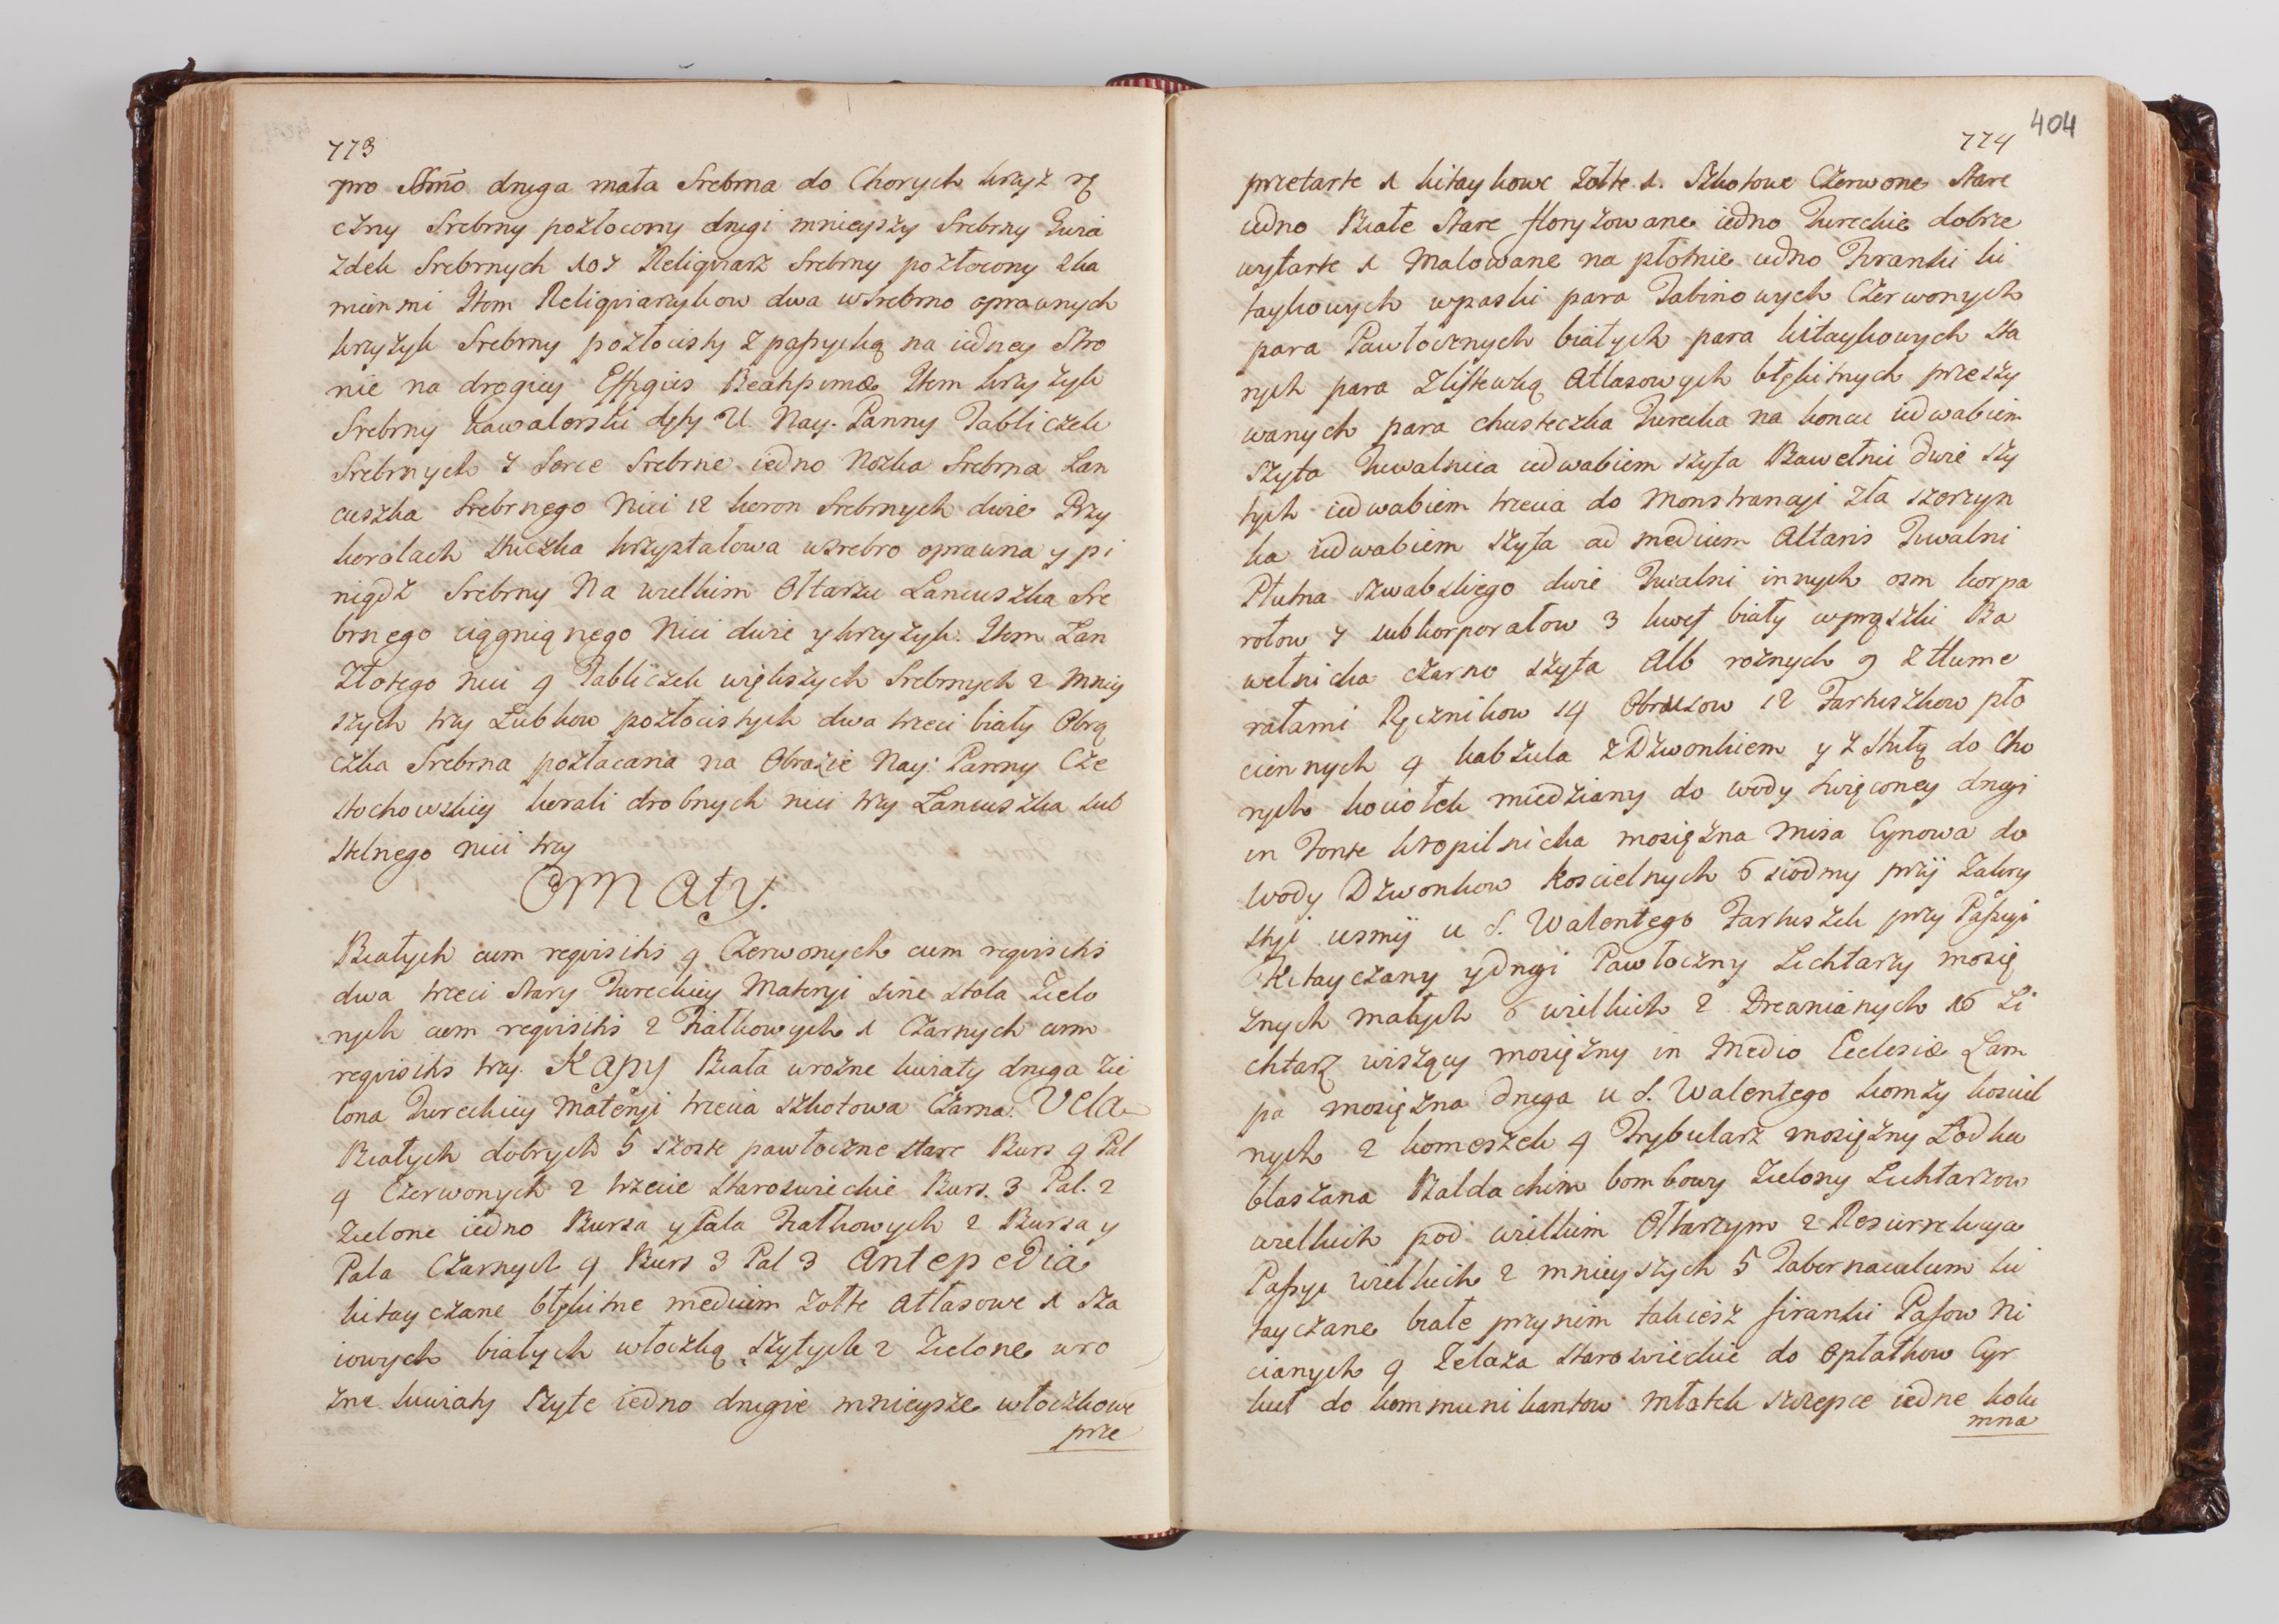 773
pro SSmo druga mała Srebrna do Chorych krzyż rę
czny Srebrny pozłocony drugi mnieyszy Srebrny Gwia
zdek Srebrnych 107 Reliqviarz Srebrny pozłocony zka
mienmi Item Reliqviarzykow dwa wsrebrno oprawnych
krzyżyk Srebrny pozłocisty z passyyką na iedney Stro
nie na drogiey Effigies Beatissimæ Item krzyżyk
Srebrny kawalerski dęty U Nay. Panny Tabliczek
Srebrnych 7 Serce Srebrne iedno Nozka Srebrna Lan
cuszka Srebrnego Nici 12 koron Srebrnych dwie Przy
koralach Stuczka krzyształowa wsrebro oprawna y pi
niądz Srebrny Na wielkim Ołtarzu Lancuszka Sre
brnego ciągnionego Nici dwie y krzyżyk. Item Lan
Złotego nici 9 Tabliczek większych Srebrnych 2 mniey
szych trzy Łubkow pozłocistych dwa trzeci biały Obrą
czka Srebrna pozłacana na Obrazie Nay: Panny Cze
stochowskiey korali drobnych nici trzy Lancuszka sub
telnego nici trzy
Ornaty.
Białych cum reqvisitis 9 Czerwonych cum reqvisitis
dwa trzeci stary Tureckiey Materyi sine stola Zielo
nych cum reqvisitis 2 Fiałkowych 1 Czarnych cum
reqvisitis trzy. Kapy Biała wrozne kwiaty druga Zie
lona Tureckiey Materyi trzecia szkotowa Czarna. Vela
Białych dobrych 5 szoste pawłoczne stare Burs 9 Pal
9 Czerwonych 2 trzecie staroswieckie Burs. 3 Pal. 2
Zielone iedno Bursa y Pala Fiałkowych 2 Bursa y
Pala Czarnych 9 Burs 3 Pal 3 Antepedia
kitayczane błękitne medium zołte Atłasowe 1 sza
iowych białych włoczką szytych 2 Zielone wro
zne kwiaty szyte iedno drugie mnieysze włoczkowe
prze
774
404
przetarte 1 kitaykowe zołte 1. Szkotowe Czerwone Stare
iedno Białe Stare floryzowane iedno Tureckie dobrze
wytarte 1 Malowane na płotnie iedno Firanki ki
taykowych wpaski para Tabinowych Czerwonych
para Pawłocznych białych para kitaykowych sta
rych para Zlistewką Atłasowych błękitnych przeszy
wanych para chusteczka Turecka na koncu iedwabiem
szyta Tuwalnica iedwabiem szyta Bawełnic dwie szy
tych iedwabiem trzecia do Monstrancyi zła szorzyn
ka iedwabiem szyta ad medium Altaris Tuwalni
Płutna szwabskiego dwie Tuwalni innych osm korpa
rołow 7 subkorporałow 3 kwef biały wprązki Ba
wełnicka czarno szyta Alb roznych 9 z Hume
rałami Ręcznikow 14 Obrusow 12 Fartuszkow pło
ciennych 9 kabzula z Dzwonkiem y z stułą do Cho
rych kociołek miedziany do wody swięconey drugi
in Fonte kropilnicka mosięzna misa Cynowa do
wody Dzwonkow Koscielnych 6 siodmy przy Zakry
styi usmy u S. Walentego Fartuszek przy Passyi
Kitayczany y drugi Pawłoczny Lichtarzy mosię
znych małych 6 wielkich 2 Drewnianych 16 Li
chtarz wiszący mosięzny in Medio Ecclesiæ Lam
pa mosięzna druga u S. Walentego komzy koscieł
nych 2 komeszek 9 Trybularz mosięzny Łodka
blaszana Baldachim bombowy Zielony Lichtarzow
wielkich pod wielkim Ołtarzym 2 Resurrekcya
Passyi wielkich 2 mnieyszych 5 Tabernaculum ki
tayczane białe przynim takiesz firanki Pasow Ni
cianych 9 Zelaza staroswieckie do Opłatkow Cyr
kuł do kommunikantow młotek szczepce iedne kolu
mna